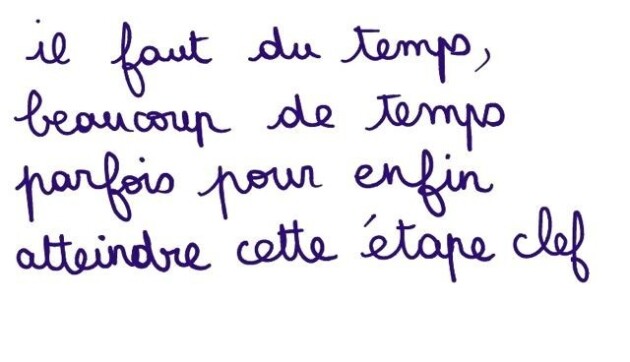 il faut du temps,
beaucoup de temps
parfois pour enfin
atteindre cette étape clef